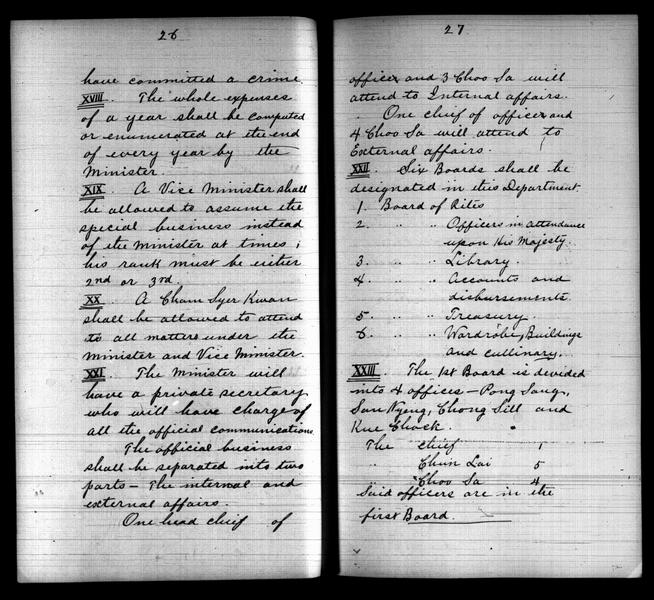 26
have committed a crime.
XVIII. The whole expenses
of a year shall be computed
or enumerated at the end
of every year by the
Minister.
XIX. A Vice Minister shall
be allowed to assume the
special business instead
of the Minister at times;
his rank must be either
2nd or 3rd.
XX. A Cham Syer Kwan
shall be allowed to attend
to all matters under the
Minister and Vice Minister.
XXI. The Minister will
have a private secretary
who will have charge of
all the official communications.
The official business
shall be separated into two
parts – The internal and
external affairs.
One head chief of
27
officer and 3 Choo Sa will
attend to Internal affairs.
One chief of officer and
4 Choo Sa will attend to
External affairs.
XXII. Six Boards shall be
designated in this Department.
1. Board of Rites
2. " " Officers in attendance
upon His Majesty.
3. " " Library.
4 " " Accounts and
disbursements.
5 " " Treasury.
6 " " Wardrobe, Buildings
and cullinary.
XXIII. The 1st Board is devided
into 4 offices – Pong Sang,
San Nyeng, Chong Sill and
Kue Chock.
The chief 1
" Chun Lai 5
" Choo Sa 4
Said officers are in the
first Board.